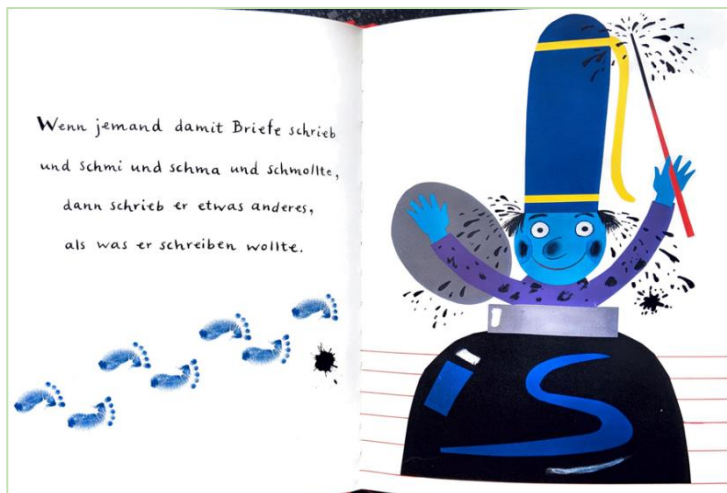 Wenn jemand damit Briefe schrieb
und schmi und schma und schmollte,
dann schrieb er etwas anderes,
als was er schreiben wollte.
S